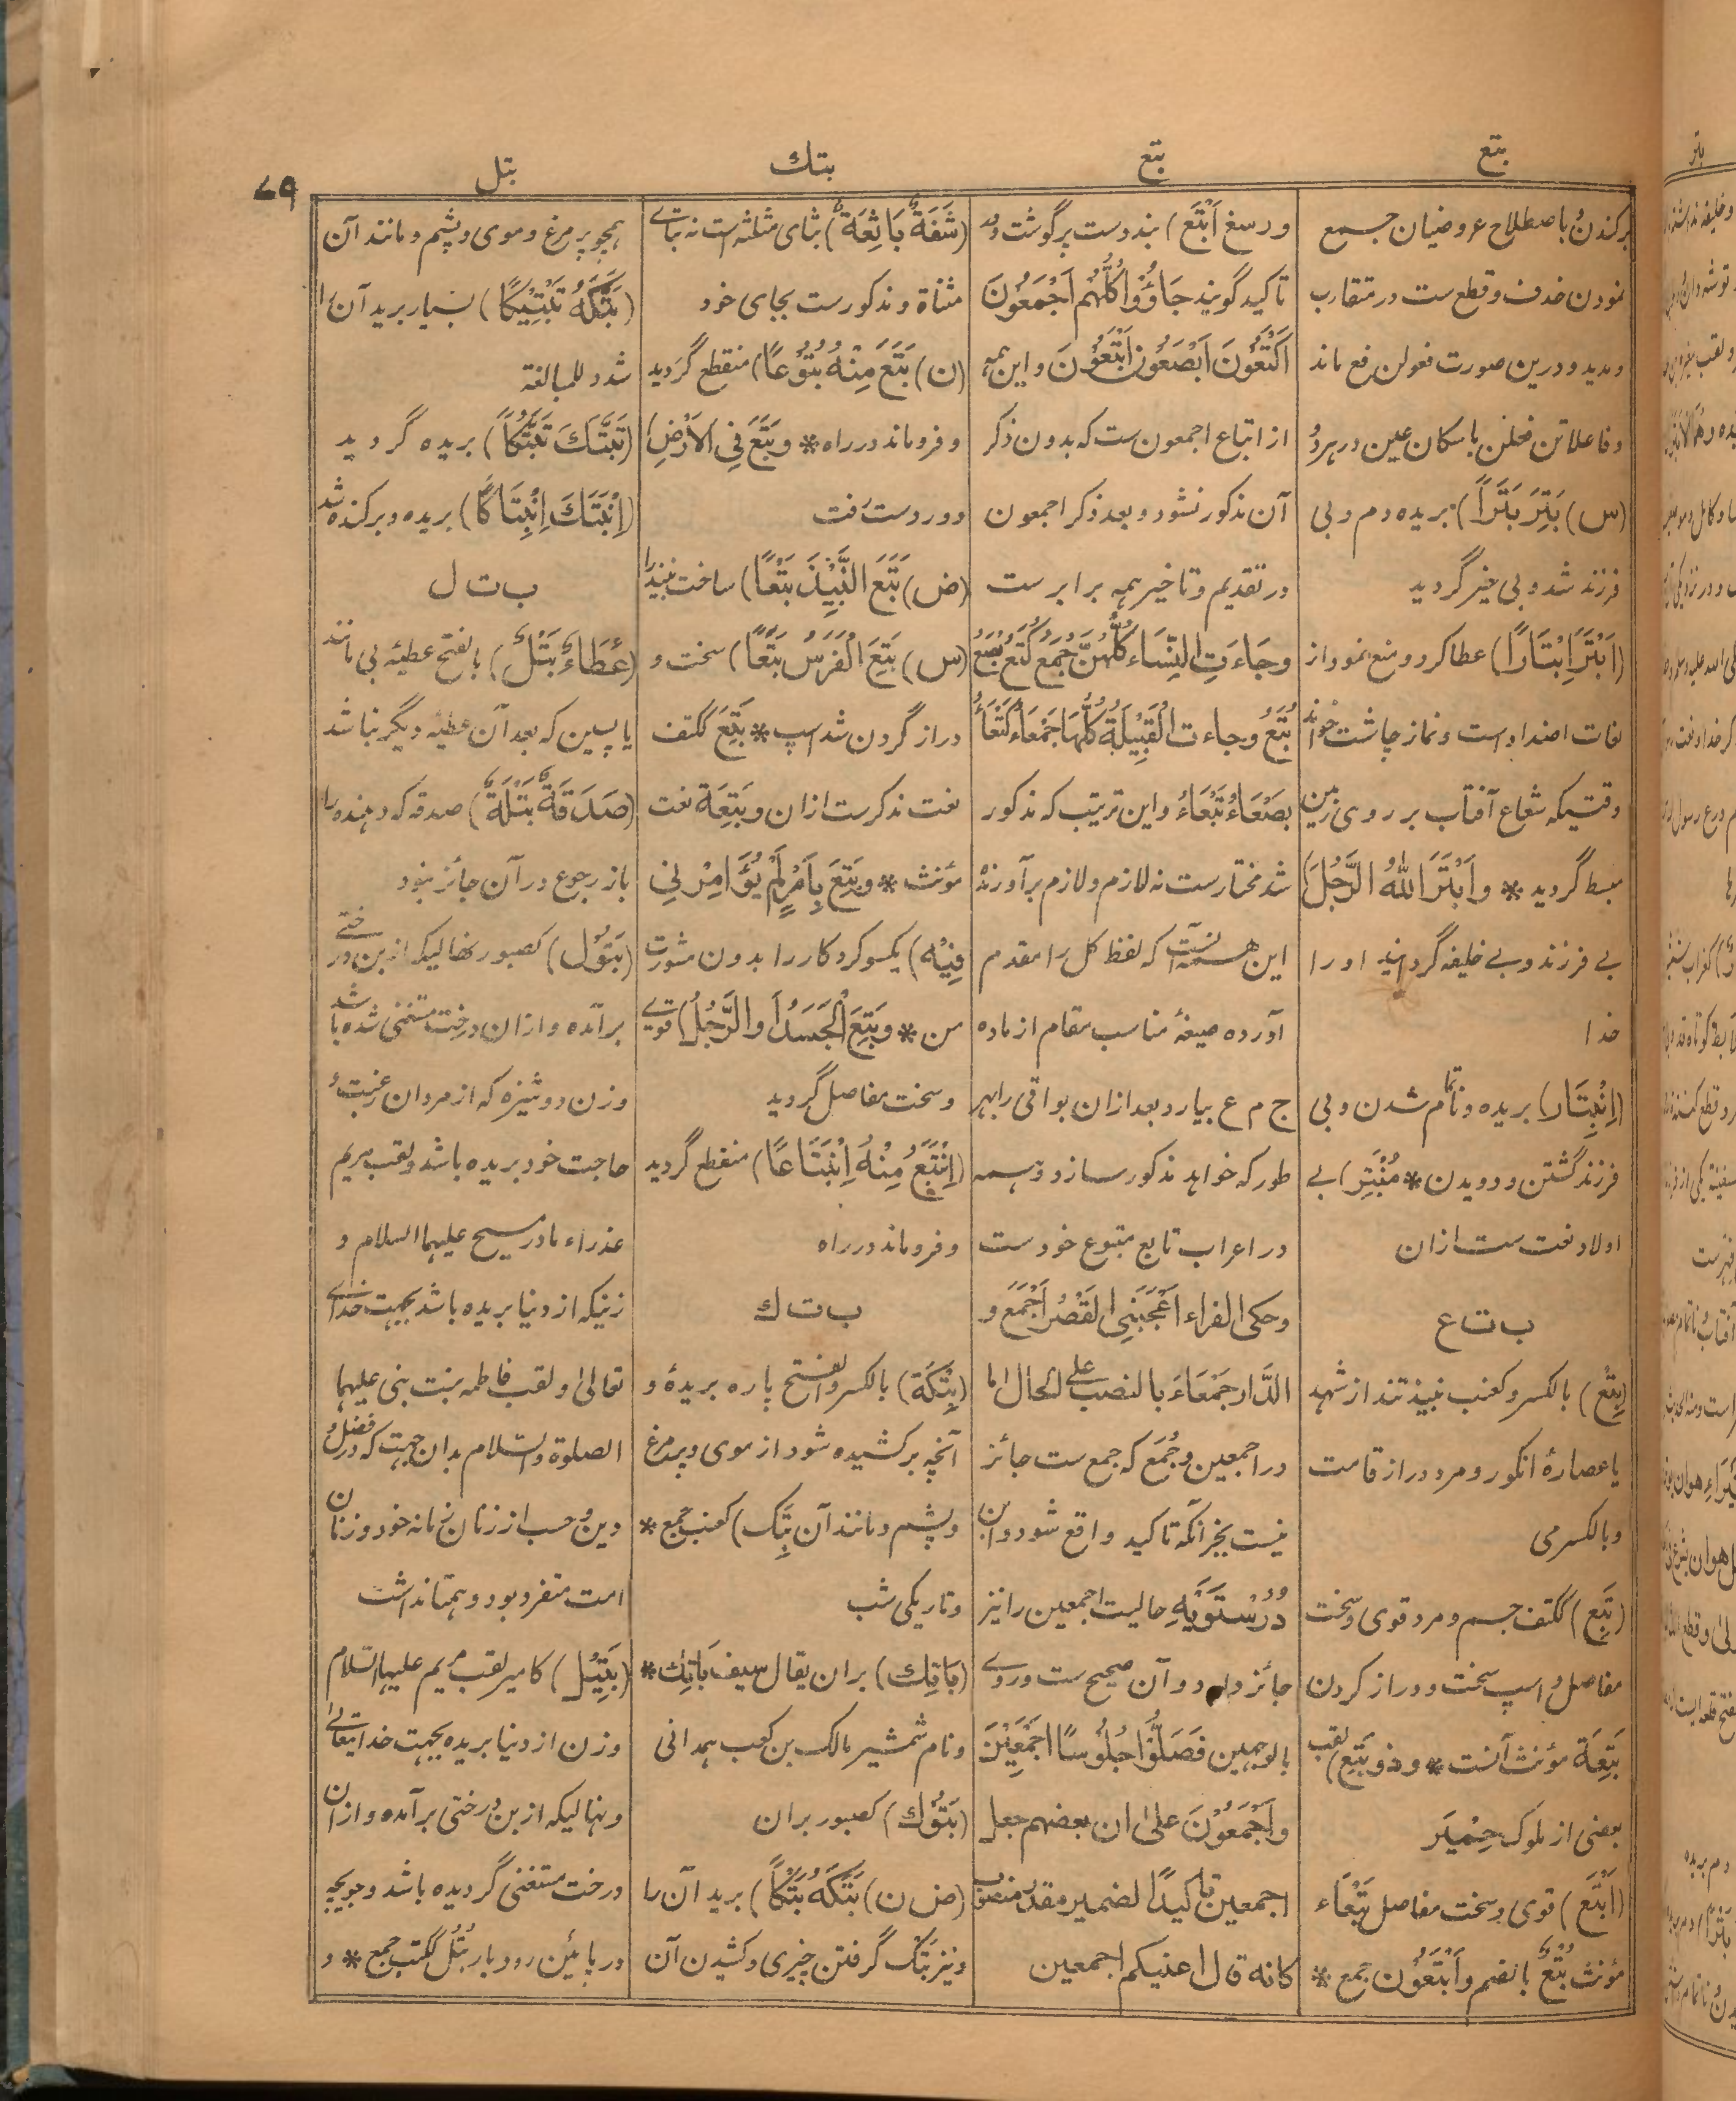 بتع
بتع
بتك
بتل
٧٩
برکندن باصطلاح عروضیان جمع
نمودن حذف و قطع ست در متقارب
و مدید و درین صورت فعولن فع ماند
و فاعلاتن فعلن باسکان عین در هر دو
(س) بَتِرَ بَتَرًا) بریده دم و بی
فرزند شد و بی خیر گردید
(اَبْتَرَ اِبْتَارًا) عطا کرد و منع نمود از
لغات اضداد ست و نماز چاشت خواند
وقتیکه شعاع آفتاب بر روی زمین
مبسط گردید * و اَبْتَرَ اللّٰهُ الرَّجُلَ)
بے فرزند و بے خلیفه گردانید او را
خدا
(اِنْبِتَار) بریده و ناتمام شدن و بی
فرزند گشتن و دویدن * مُنْبَتِر) بے
اولاد نعت ست ازان
ب ت ع
(بِتْع) بالکسر و کعنب نبیذ تند از شهد
یا عصارۀ انگور و مرد دراز قامت
و بالکسر می
(بَتِع) ککتف جسم و مرد قوی و سخت
مفاصل و اسپ سخت و دراز گردن
بَتِعَة مؤنث آنست * و ذو بَتَع) لقب
بعضی از ملوک حِمْیَر
(اَبْتَع) قوی و سخت مفاصل بَتْعَاء
مؤنث بُتْع بالضم و اَبْتَعُوْن جمع *
و رسغ اَبْتَع) بند دست پر گوشت و در
تاکید گویند جَاؤُوْا كُلُّهُم اَجْمَعُوْنَ
اَكْتَعُوْنَ اَبْصَعُوْنَ اَبْتَعُوْنَ و این همه
از اتباع اجمعون ست که بدون ذکر
آن مذکور نشود و بعد ذکر اجمعون
در تقدیم و تاخیر همه برابر ست
و جَاءَتِ النِّسَاء كُلُّهُنَّ جُمَعُ كُتَعُ بُصَعُ
بُتَعُ و جاءت الْقَبِيْلَةُ كُلُّهَا جَمْعَاءُ كَتْعَاءُ
بَصْعَاءُ بَتْعَاءُ و این ترتیب که مذکور
شد مختار ست نه لازم و لازم بر آورندۀ
این همه آنست که لفظ کل را مقدم
آورده صیغۀ مناسب مقام از ماده
ج م ع بیارد بعد ازان بواقی را بهر
طور که خواهد مذکور سازد و همه
در اعراب تابع متبوع خود ست
و حکی الفراء اَعْجَبَنِي الْقَصْرُ اَجْمَعَ و
الدَّار جَمْعَاءَ بالنصب علی الحال اما
در اجمعین و جُمَع که جمع ست جائز
نیست بجز آنکه تاکید واقع شود و ابن
دُرُسْتَوَيْهِ حالیت اجمعین را نیز
جائز دارد و آن صحیح ست و روے
بالوجهین فَصَلُّوْا جُلُوْسًا اَجْمَعِيْنَ
و اَجْمَعُوْنَ علیٰ ان بعضهم جعل
اجمعین تاکیدًا لضمیر مقدر منصوب
کانه قال اعنیکم اجمعین
(شَفَةٌ بَاثِعَةٌ) بثای مثلثه است نه بتاے
مثناة و مذکور ست بجای خود
(ن) بَتَعَ مِنْهُ بُتُوْعًا) منقطع گردید
و فرو ماند در راه * و بَتَعَ فِي الاَرْضِ)
دور دست رفت
(ض) بَتَعَ النَّبِيْذَ بَتْعًا) ساخت نبیذ را
(س) بَتِعَ الْفَرَسُ بَتَعًا) سخت و
دراز گردن شد اسپ * بَتِعَ ککتف
نعت مذکر ست ازان و بَتِعَة نعت
مؤنث * و بَتِعَ بِاَمْرٍ لَمْ يُؤَامِرْنِي
فِيْهِ) یکسو کرد کار را بدون مشورت
من * و بَتِعَ الْجَسَدُ اَو الرَّجُلُ) قوے
و سخت مفاصل گردید
(اِنْبَتَعَ مِنْهُ اِنْبِتَاعًا) منقطع گردید
و فرو ماند در راه
ب ت ك
(بِتْكَة) بالکسر و الفتح پاره بریدۀ و
آنچه بر کشیده شود از موی و پر مرغ
و پشم و مانند آن بِتَك) کعنب جمع *
و تاریکی شب
(بَاتِك) بران یقال سیف بَاتِك *
و نام شمشیر مالک بن کعب همدانی
(بَتُوْك) کصبور بران
(ض ن) بَتَكَهُ بَتْكًا) برید آن را
و نیز بَتْك گرفتن چیزی و کشیدن آن
همچو پر مرغ و موی و پشم و مانند آن
(بَتَّكَهُ تَبْتِيْكًا) بسیار برید آن را
شدد للمبالغة
(تَبَتَّكَ تَبَتُّكًا) بریده گردید
(اِنْبَتَكَ اِنْبِتَاكًا) بریده و برکنده شد
ب ت ل
(عَطَاءٌ بَتْلٌ) بالفتح عطیۀ بی مانند
یا پسین که بعد آن عطیۀ دیگر نباشد
(صَدَقَةٌ بَتْلَةٌ) صدقه که دهنده را
باز رجوع در آن جائز نبود
(بَتُوْل) کصبور نهالیکه از بن درختے
بر آمده و ازان درخت مستغنی شده باشد
و زن دوشیزه که از مردان رغبت و
حاجت خود بریده باشد و لقب مریم
عذراء مادر مسیح علیهما السلام و
زنیکه از دنیا بریده باشد بجهت خداے
تعالیٰ و لقب فاطمه بنت نبی علیهما
الصلوة و السلام بدان جهت که در فضل و
دین و حسب از زنان زمانه خود و زنان
امت متفرد بود و همتا نداشت
(بَتِيْل) کامیر لقب مریم علیها السلام
و زن از دنیا بریده بجهت خدایتعالے
و نهالیکه از بن درختی بر آمده و ازان
درخت مستغنی گردیده باشد و جویچه
در پائین رودبار بُتُل ککتب جمع * و